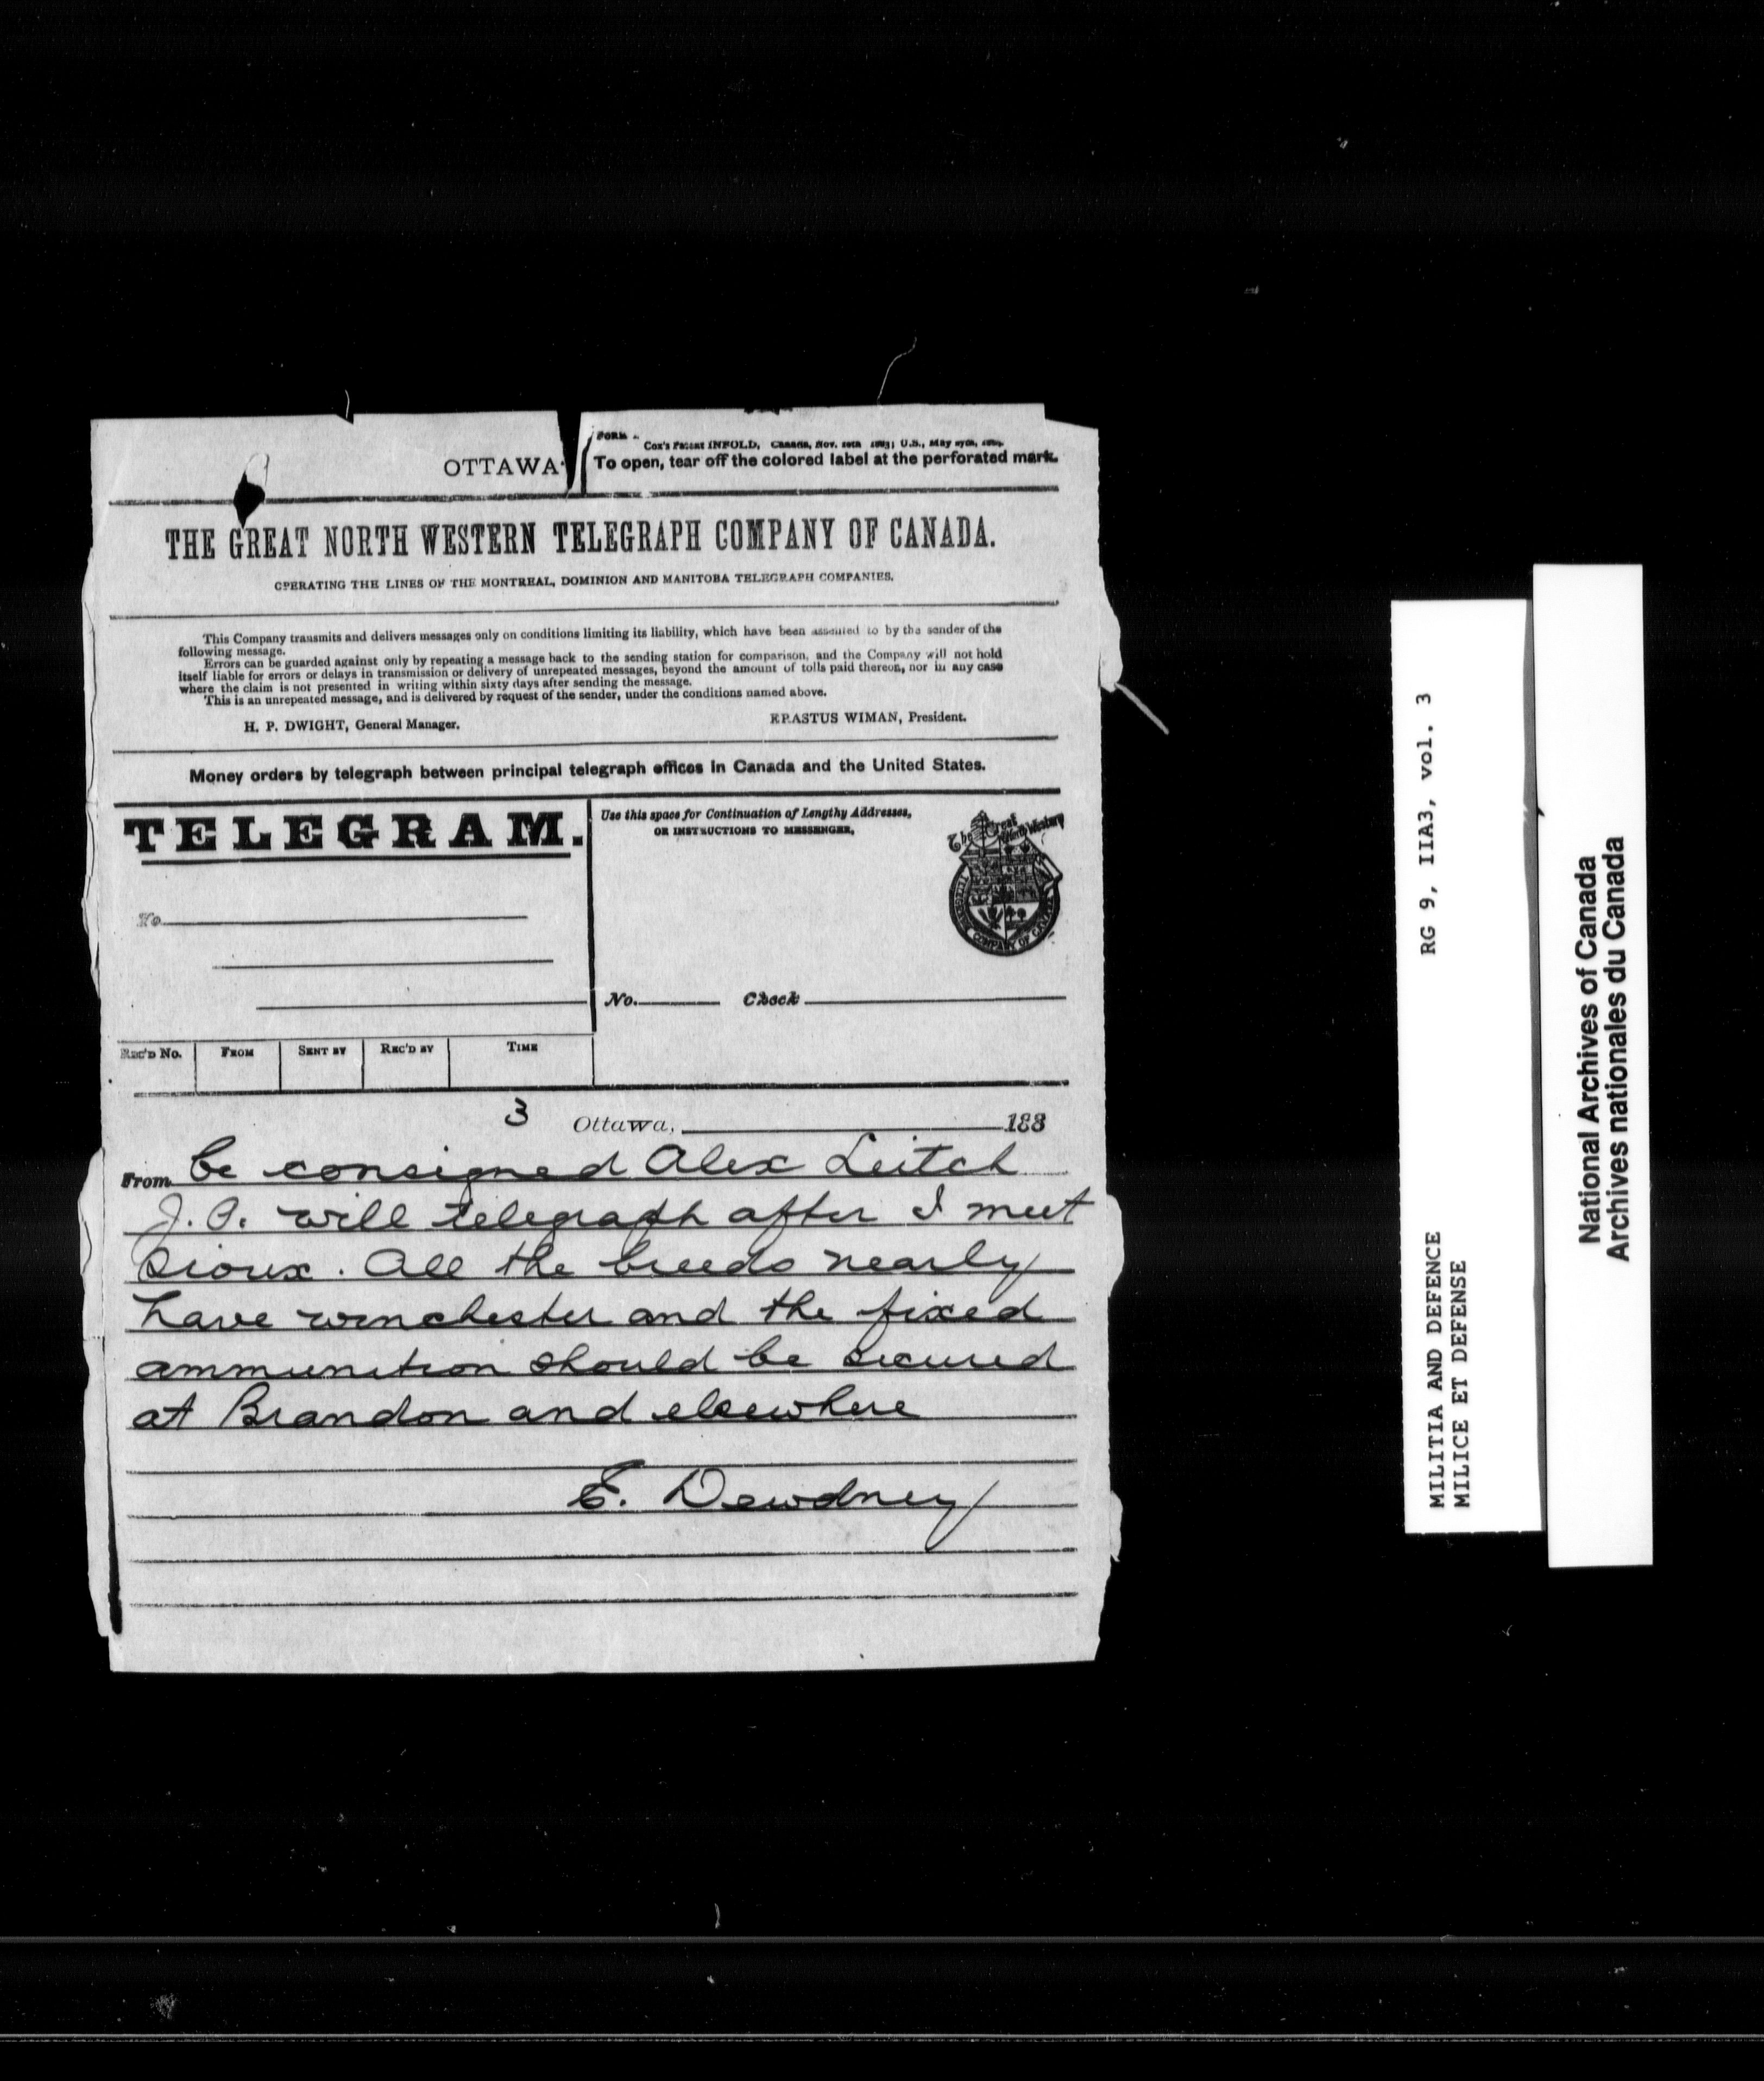 FORM
Cox's Patent INFOLD, Canada, Nov. 1883; U.S., May
OTTAWA
To open, tear off the colored label at the perforated mark.
THE GREAT NORTH WESTERN TELEGRAPH COMPANY OF CANADA.
OPERATING THE LINES OF THE MONTREAL, DOMINION AND MANITOBA TELEGRAPH COMPANIES.
This Company transmits and delivers messages only on conditions limiting its liability, which have been assented to by the sender of the
following message.
Errors can be guarded against only by repeating a message back to the sending station for comparison, and the Company will not hold
itself liable for errors or delays in transmission or delivery of unrepeated messages, beyond the amount of tolls paid thereon, nor in any case
where the claim is not presented in writing within sixty days after sending the message.
This is an unrepeated message, and is delivered by request of the sender, under the conditions named above.
H. P. DWIGHT, General Manager.
ERASTUS WIMAN, President.
Money orders by telegraph between principal telegraph offices in Canada and the United States.
TELEGRAM.
Use this space for Continuation of Lengthy Addresses,
OR INSTRUCTIONS TO MESSENGER,
The Great North Western
TELEGRAPH COMPANY OF CANADA
To
No. Check
REC'D NO. FROM SENT BY REC'D BY TIME
3 Ottawa, 188
From be consigned Alex Leitch
J.P. will telegraph after I meet
Sioux. All the breeds nearly
have winchester and the fixed
ammunition should be secured
at Brandon and elsewhere
E. Dewdney
MILITIA AND DEFENCE RG 9, IIA3, vol. 3
MILICE ET DEFENSE
National Archives of Canada
Archives nationales du Canada